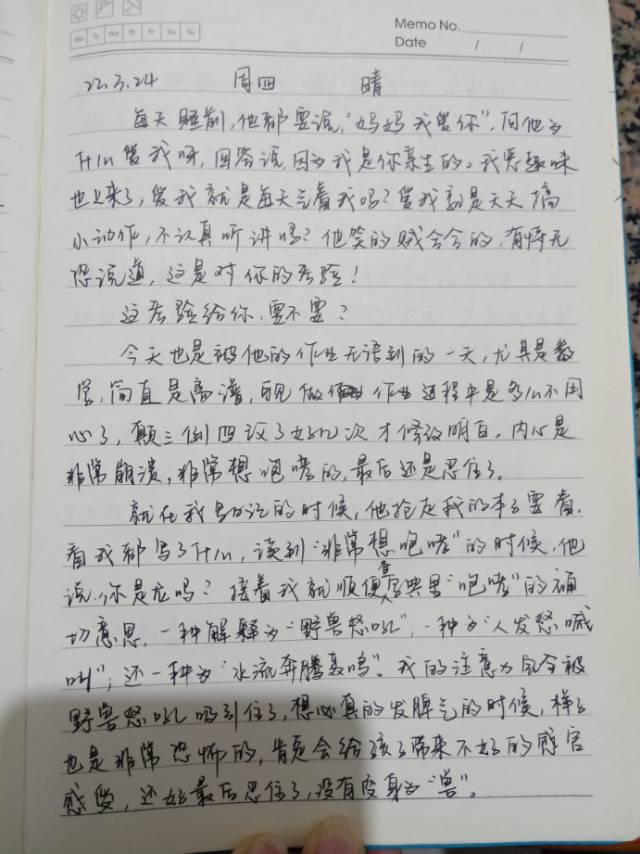 Memo No.
Mo Tu We Th Fr Sa Su
Date / /
22.3.24 周四 晴
每天睡前,他都要说,“妈妈我爱你”,问他为
什么爱我呀,回答说,因为我是你亲生的。我恶趣味
也上来了,爱我就是每天气着我吗?爱我就是天天搞
小动作,不认真听讲吗?他笑的贼兮兮的,有恃无
恐说道,这是对你的考验!
这考验给你,要不要?
今天也是被他的作业无语到的一天,尤其是数
学,简直是离谱,可见做作业过程中是多么不用
心了,颠三倒四改了好几次才修改明白。内心是
非常崩溃,非常想咆哮的,最后还是忍住了。
就在我写日记的时候,他抢走我的本子要看,
看我都写了什么,读到“非常想咆哮”的时候,他
说,你是龙吗?接着我就顺便查字典里“咆哮”的确
切意思,一种解释为“野兽怒吼”,一种为“人发怒喊
叫”;还一种为“水流奔腾轰鸣”。我的注意力完全被
野兽怒吼吸引住了,想必真的发脾气的时候,样子
也是非常恐怖的,肯定会给孩子带来不好的感官
感受,还好最后忍住了,没有变身为“兽”。